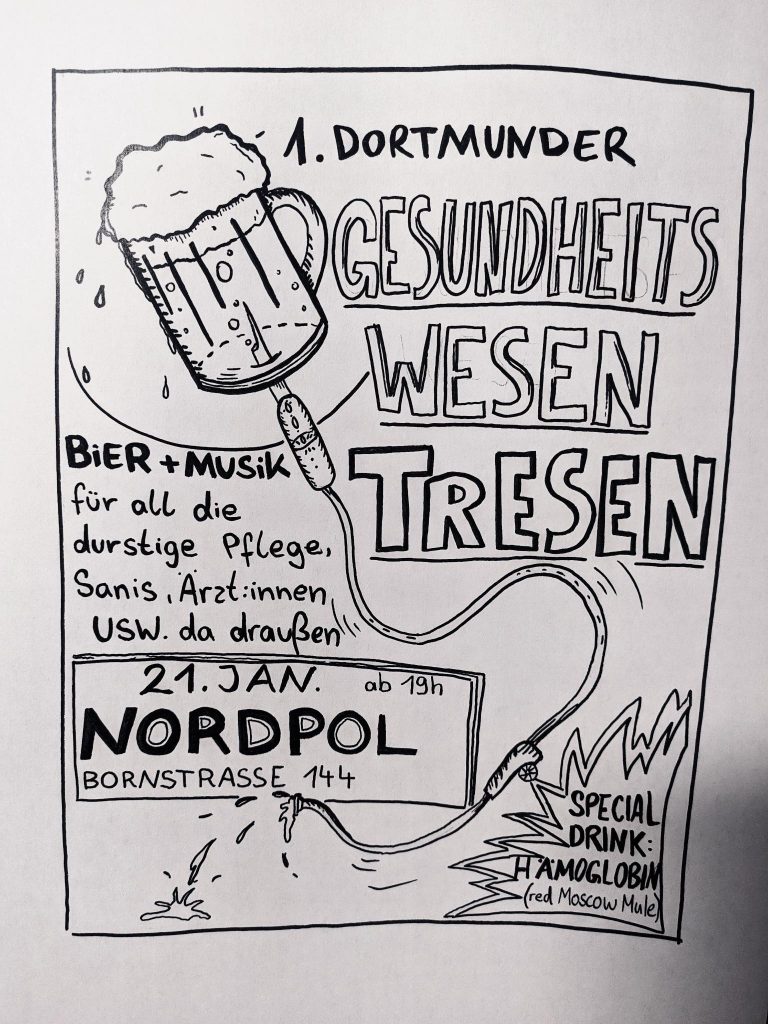 1. DORTMUNDER
GESUNDHEITS
WESEN
TRESEN
BiER + MUSiK
für all die
durstige Pflege,
Sanis, Ärzt:innen
USW. da draußen
21. JAN. ab 19h
NORDPOL
BORNSTRASSE 144
SPECIAL
DRINK:
HÄMOGLOBIN
(red Moscow Mule)